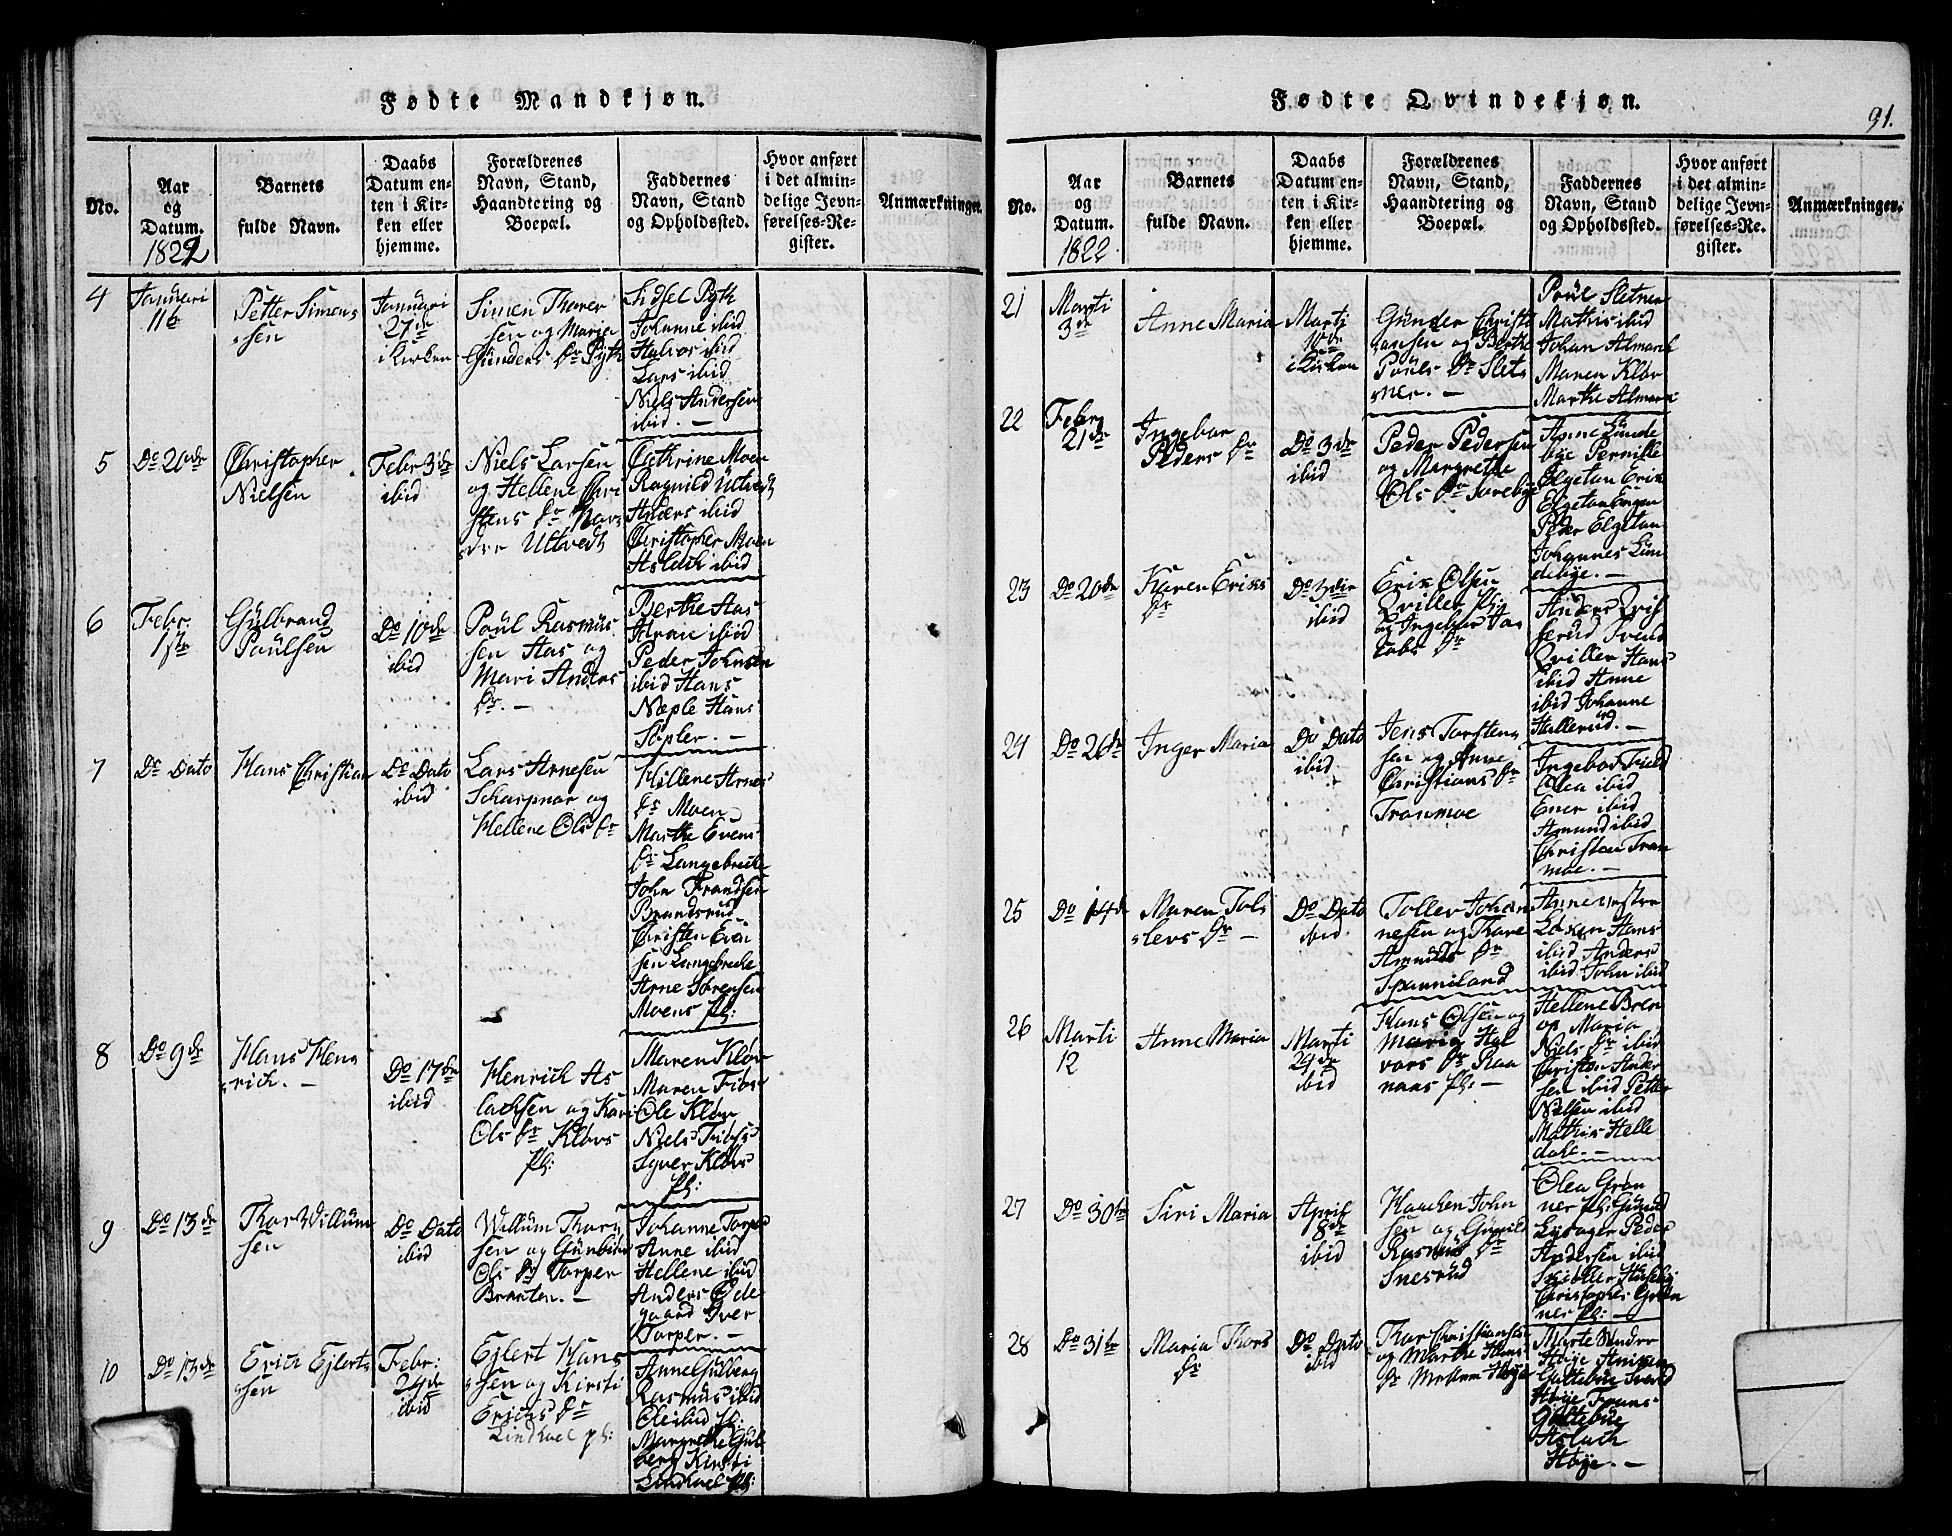 Fødte Mandkjøn.
No.
Aar
og
Datum.
1822
Barnets
fulde Navn.
Daabs
Datum en-
ten i Kir-
ken eller
hjemme.
Forældrenes
Navn, Stand,
Haandtering og
Boepæl.
Faddernes
Navn, Stand
og Opholdssted.
Hvor anført
i det almin-
delige Jevn-
førelses-Re-
gister.
Anmærkninger.
4
Januari
11te
Petter Simens
sen
Januari
27de
i Kirken
Simen Thorer
sen og Marja
Günders Dr Pyth
Sidsel Pyth
Johanne ibid
Halvor ibid
Lars ibid
Niels Andersen
ibid. –
5
Do 20de
Christopher
Nielsen
Febr 3die
ibid
Niels Larsen
og Hellene Chri
stens Dr Nor
dre Ultvedt
Cathrine Moen
Ragnild Ultvedt
Anders ibid
Christopher Moen
Aslach ibid
6
Febr.
1ste
Gulbrand
Paulsen
Do 10de
ibid
Poul Rasmus
sen Aas og
Mari Anders
Dr. –
Berthe Aas
Aran ibid
Peder Johnsen
ibid Hans
Næple Hans
Sopler. –
7
Do Dato
Hans Christian
Do Dato
ibid
Lars Arnesen
Scharpnor og
Hellene Ols Dr
Hellene Arnes
Dr Moen
Marthe Evens
Dr Langebreche
John Frandsen
Brandsrud
Christen Even
sen Langebreche
Arne Sørensen
Moens pl:
8
Do 9de
Hans Hen
rich. –
Do 17de
ibid
Henrich As
lachsen og Kari
Ols Dr Kløvs
pl:
Maren Kløv
Maren
Ole Kløv
Niels
Syver Kløvs
pl:
9
Do 13de
Thor Willum
sen
Do Dato
ibid
Willum Thor
sen og Gunbior
Ols Dr Torper
Braaten. –
Johanne Torper
Anne ibid
Hellene ibid
Anders Øde
gaard Iver
Torper. –
10
Do 13de
Erich Ejlert
sen
Febr:
24de
ibid
Ejlert Hans
sen og Kirsti
Erichs Dr
Lindhoel pl:
Anne Gulberg
Rasmus ibid
Ole ibid pl:
Margrethe Gul
berg Kirsti
Lindhoel pl:
Fødte Qvindekjøn.
91.
No.
Aar
og
Datum.
1822
Barnets
fulde Navn.
Daabs
Datum en-
ten i Kir-
ken eller
hjemme.
Forældrenes
Navn, Stand,
Haandtering og
Boepæl.
Faddernes
Navn, Stand
og Opholdssted.
Hvor anført
i det almin-
delige Jevn-
førelses-Re-
gister.
Anmærkninger.
21
Marti
3de
Anne Maria
Marti
10de
i Kirken
Günder Christi
ansen og Berthe
Pouls Dr Slet
ner. –
Poul Sletner
Mathis ibid
Johan Almark
Maren Kløv
Marthe Almark
22
Febr
21de
Ingebor
Peders Dr
Do 3de
ibid
Peder Pedersen
og Margrethe
Ols Dr
Anne Lunde
bye Pernille
Elgetun Erik
Elgetun
Peder Elgetun
Johannes Lun
debye. –
23
Do 20de
Karen Eriks
Dr
Do 3die
ibid
Erik Olsen
Qviller pl:
og Ingebor Ja
cobs Dr
Anders
Svend
Qviller Hans
ibid Anne
ibid Johanne
Hallerud. –
24
Do 26de
Inger Maria
Do Dato
ibid
Jens Torsten
sen og Anne
Christians Dr
Tronmoe
Ingebor
Olea ibid
Ener ibid
Amund ibid
Christen Tron
moe. –
25
Do 14de
Maren Tol
levs Dr –
Do Dato
ibid
Toller Johan
nesen og Thore
Amunds Dr
Spanniland
Anne Vestre
Løken Hans
ibid Anders
ibid John ibid
26
Marti
12
Anne Maria
Marti
24de
ibid
Hans Olsen og
Maria Hal
vors Dr Raa
naas pl: –
Hellene Bren
og Maria
Niels Dr ibid
Christen Ander
sen ibid Petter
Nielsen ibid
Mathis Helle
dahl. –
27
Do 30te
Siri Maria
April
8de
ibid
Haachen John
sen og Gunild
Rasmus Dr
Snesrud
Olea Grøn
ner pl: Gunild
Lysager Peder
Andersen ibid
Christopher Grøn
ner pl: –
28
Do 31te
Maria Thors
Dr
Do Dato
ibid
Thor Christiansen
og Marthe Hans
Dr Mellem Høje
Marte Søndre
Høje
Svend
Høje Frans
Aslach
Høje. –